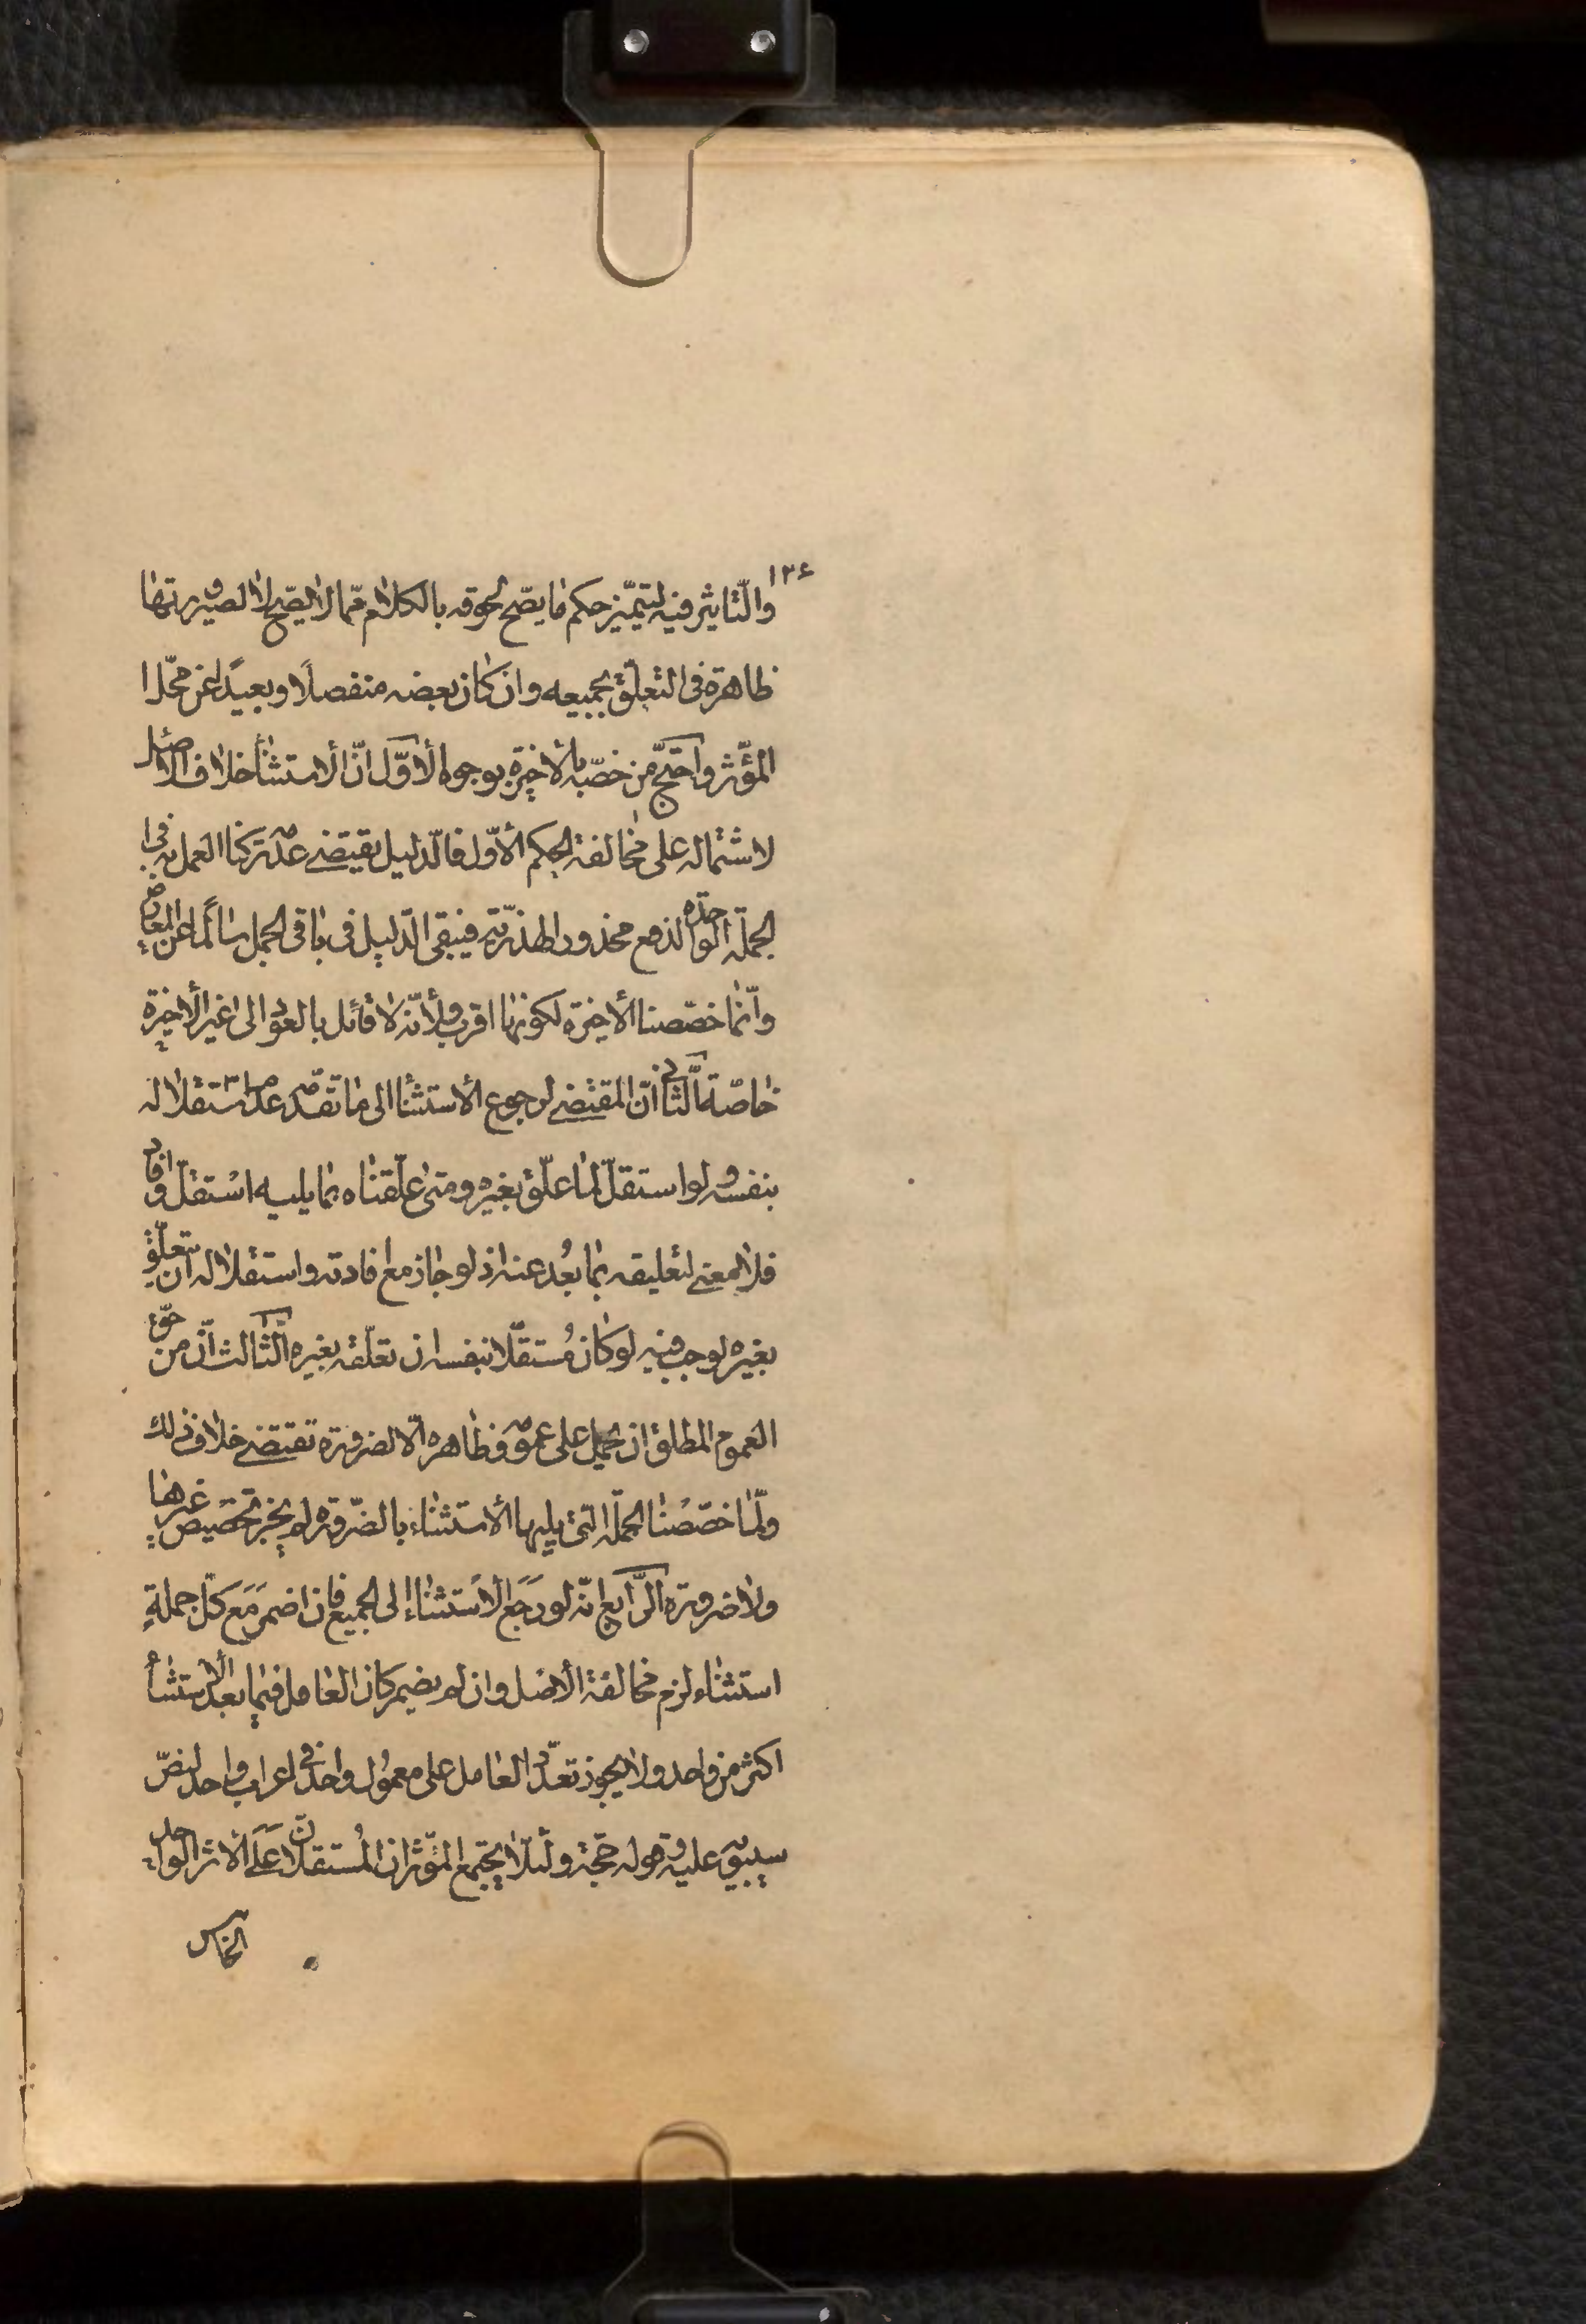 ١٣٤
والتّاثير فيه ليتميّز حكم ما يصّح لحوقه بالكلام ممّا لا يصّح لا لصيرورتها
ظاهرة فى التعلّق بجميعه وان كان بعضه منفصلًا وبعيدًا عن محّل ا
المؤثّر واحتجّ من خصّه بالأخيرة بوجوه الأوّل انّ الاستثنأ خلاف الاصل
لاشتماله على مخالفة الحكم الأوّل فالدّليل يقتضے عدم تركنا العمل به فى ا
لجملة الواحدة لدفع محذور الهذريّة فيبقى الدّليل فى باقى الجمل سالمًا عن المعارض
وانّما خصّصنا الأخيرة لكونها اقرب ولأنّه لا قائل بالعود الى غير الأخيرة
خاصّة الثّانى انّ المقتضے لرجوع الأستثنأ الى ما تقدّم عدم استقلاله
بنفسه ولو استقلّ لما علّق بغيره ومتى علّقناه بما يليه استقلّ وافاد
فلا معنے لتعليقه بما بعُد عنه اذ لو جاز مع افادته واستقلاله ان يتعلّق
بغيره لوجب فيه لو كان مُستقّلا بنفسه ان تعلّقه بغيره الثّالث انّ من حقّ
العموم المطلق ان يحمل على عمومه وظاهره الّا لضرورة تقتضے خلاف ذلك
ولمّا خصّصْنا الجملة التى يليها الأستثناء بالضّرورة لم يجز تخصيص غيرها
ولا ضرورة الرّابع انّه لو رَجَع الأستثناء الى الجميع فان اضمر مَع كلّ جملةٍ
استثناء لزم مخالفة الأصل وان لم يضمر كان العامل فيما بعد الاستثنأ
اكثر من واحد ولا يجوز تعدّد العامل على معمول واحد فى اعراب واحد لنصّ
سيبويه عليه وقوله حجّة ولئلّا يجتمع المؤثّران المُستقلّان عَلَے الأثر الواحد
الخامس